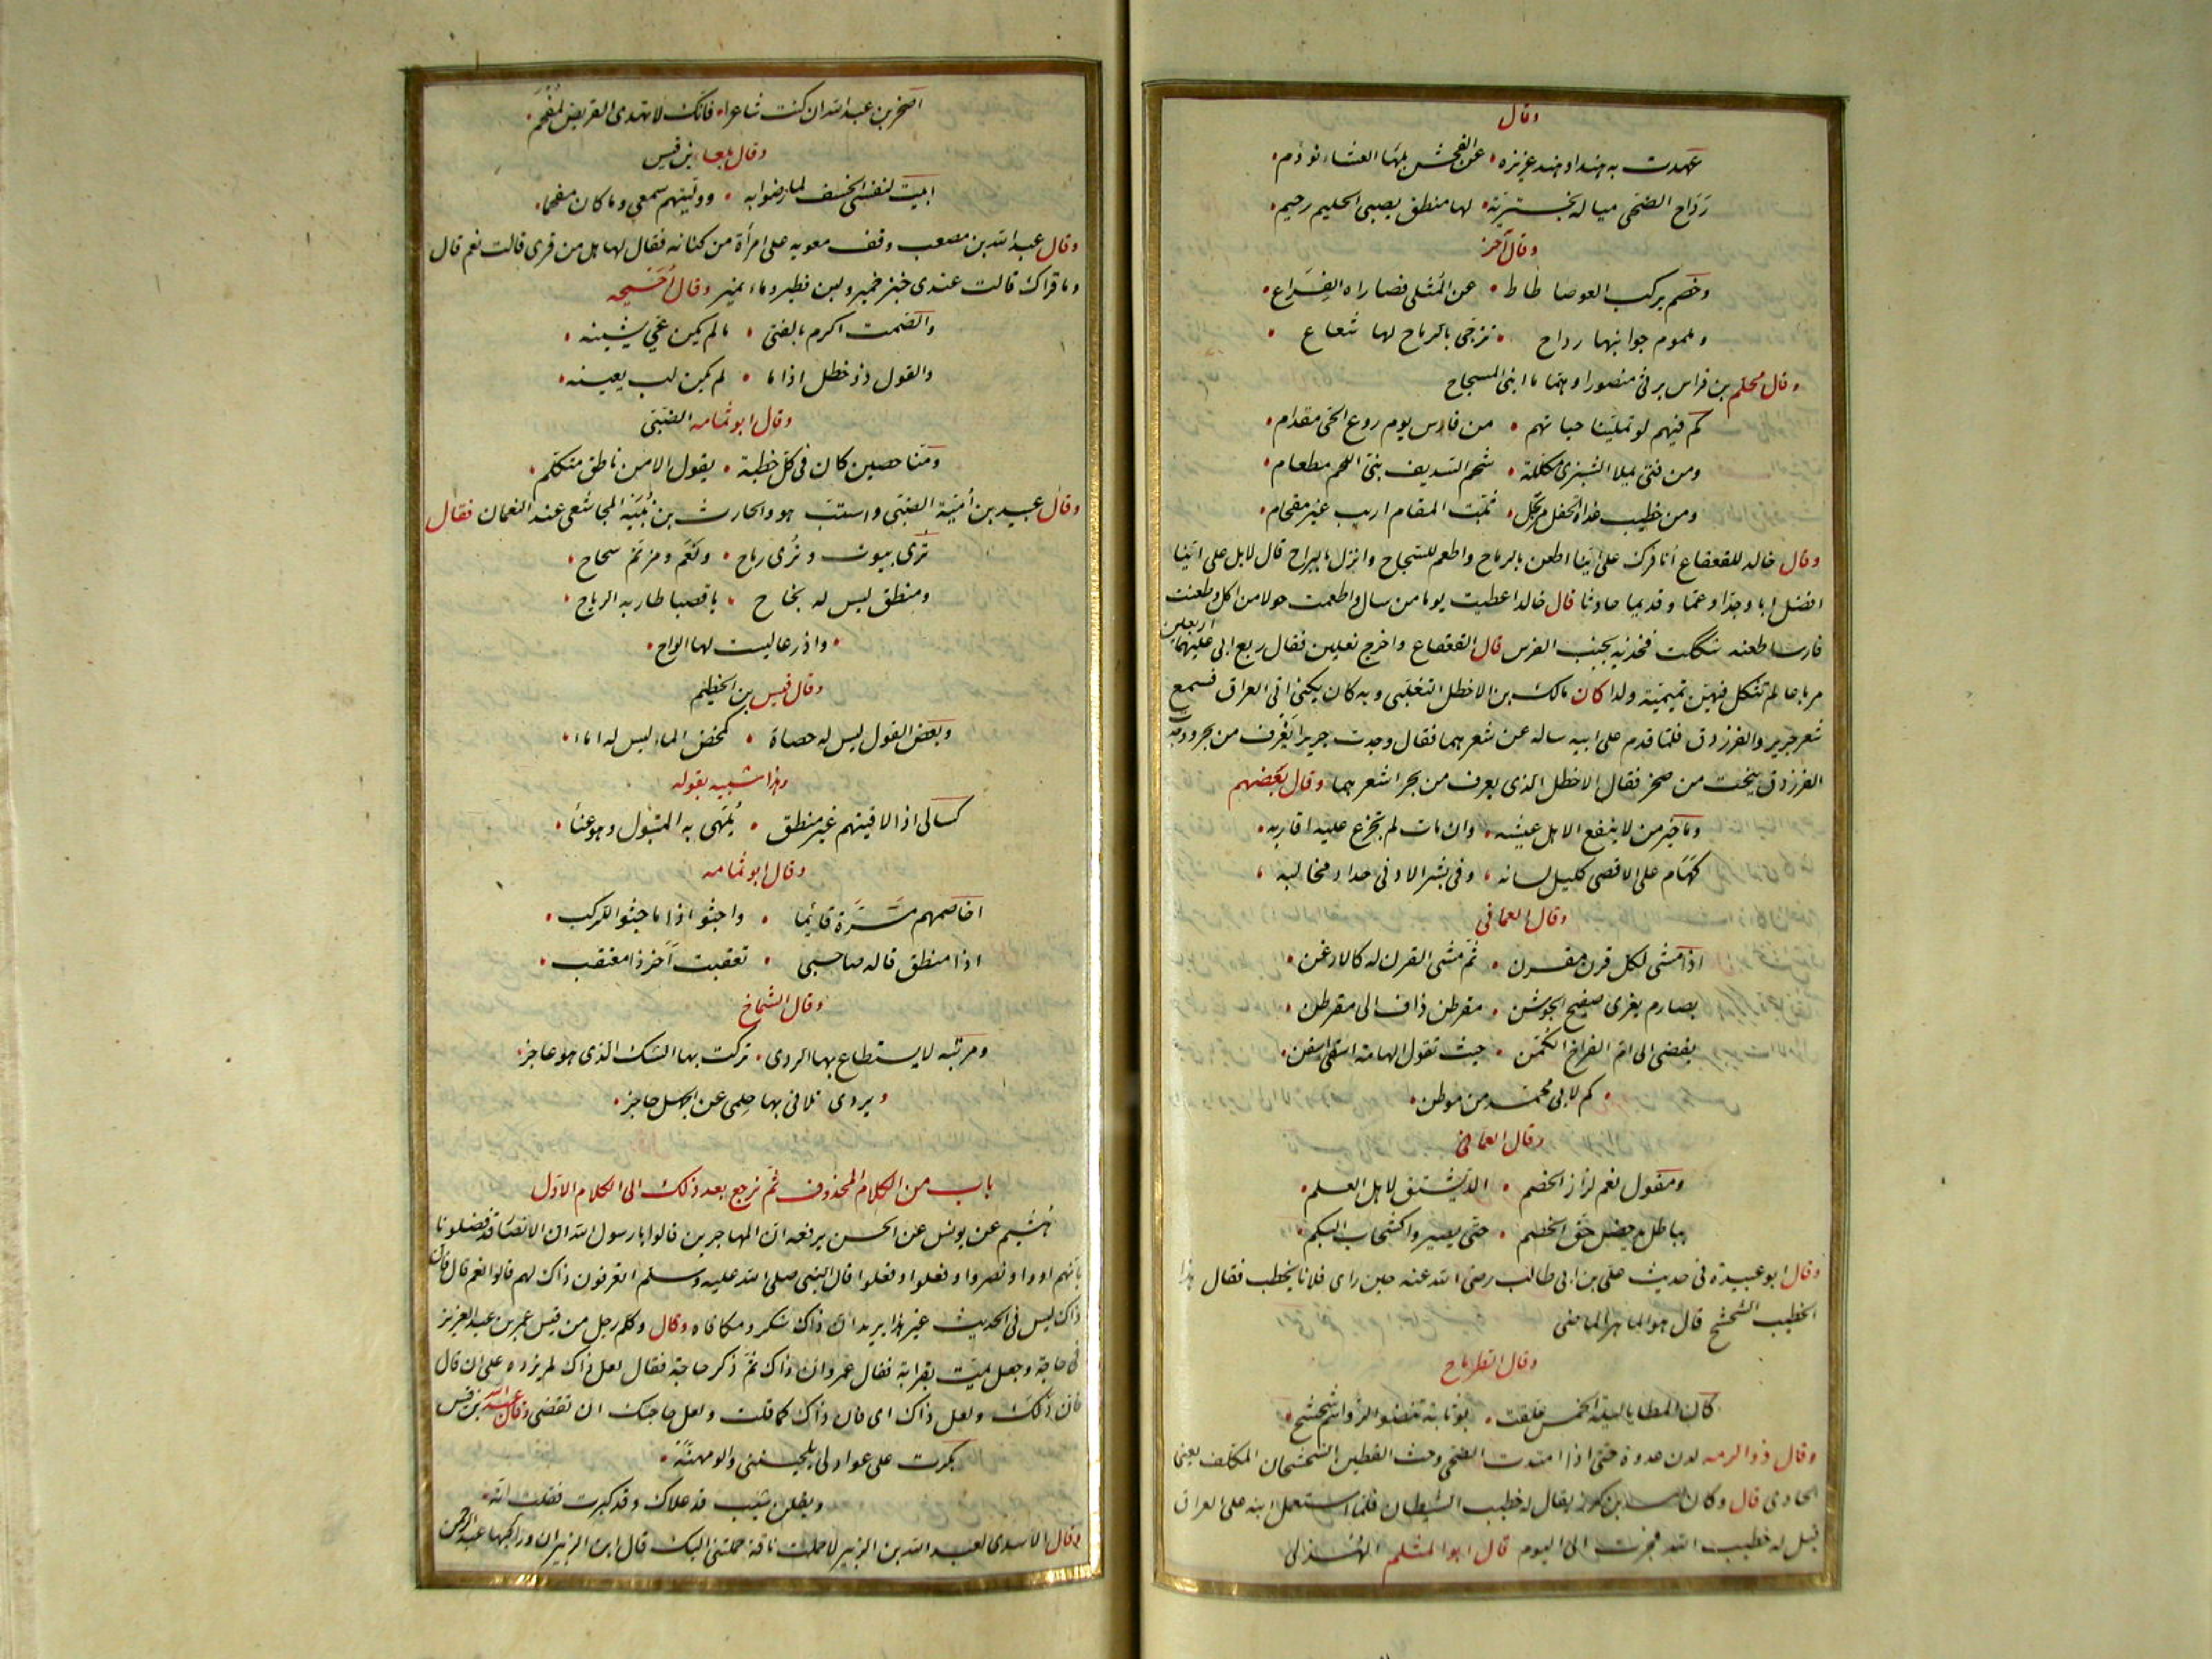 وقال
عهدت به هندا وهند عزيزه • عن الفحش بلهاء العشاء نوؤم •
رداح الضحى مياله بخترية • لها منطق يصبى الحليم رخيم •
وقال آخر
وخصم يركب العوصا طاط • عن المثلى قصاراه القراع •
وملموم جوانبها رداح • تزجى بالرماح لها شعاع •
وقال محلم بن فراس يرثى منصورا وهما ما ابنى المسجاح
كم فيهم لو تملينا حياتهم • من فارس يوم روع الحى مقدام •
ومن فتى يملا الشيزى مكللة • شحم السديف ندى اللحم مطعام •
ومن خطيب غداة الحفل مرتجل • ثبت المقام اريب غير مفحام •
وقال خالد للقعقاع أنافرك على اينا اطعن بالرماح واطعم للسجاح وانزل بالبراح قال لا بل على اينا
افضل ابا وجدا وعما وقديما حادثا قال خالد اعطيت يوما من سال واطعمت حولا من اكل وطعنت
فارسا طعنه شككت فخذيه بجنب الفرس قال القعقاع واخرج نعلين فقال ربع ابى عليهما اربعين
مرباعا لم تثكل فيهن تميمية ولدا كان مالك بن الاخطل التغلبى وبه كان يكنى اتى العراق فسمع
شعر جرير والفرزدق فلما قدم على ابيه ساله عن شعرهما فقال وجدت جريرا يغرف من بحر ووجدت
الفرزدق ينحت من صخر فقال الاخطل الذى يغرف من بحر اشعرهما وقال بعضهم
وما خير من لا ينفع الاهل عيشه • وان مات لم تجزع عليه اقاربه •
كهام على الاقصى كليل لسانه • وفى بشر الادنى حداد مخالبه •
وقال العمانى
اذا مشى لكل قرن مقرن • ثم مشى القرن له كالارعن •
بصارم يفرى صفيح الجوشن • مقرطن ذاف الى مقرطن •
يفضى الى ام الفراخ الكمن • حيث تقول الهامة اسقى اسقن •
• كم لابى محمد من موطن •
وقال العمانى
ومقول نعم لزاز الخصم • الد يشتق لاهل العلم •
بباطل يدحض حق الخصم • حتى يصيروا كشحاب البكم •
وقال ابو عبيدة فى حديث على بن ابى طالب رضى الله عنه حين راى فلانا يخطب فقال هذا
الخطيب الشحشح قال هو الماهر الماضى
وقال الطرماح
كان المطايا ليلة الخمس علقت • بوثابة تنضو الرواسم شحشح •
وقال ذو الرمه لدن غدوة حتى اذا امتدت الضحى وحث القطين الشحشحان المكلف يعنى
الحادى قال وكان اسد بن كرز يقال له خطيب الشيطان فلما استعمل ابنه على العراق
قيل له خطيب الله فجرت الى اليوم قال ابو المثلم الهذلى
اصخر بن عبد الله ان كنت شاعرا • فانك لا تهدى القريض لمفحم •
وقال بلعاء بن قيس
ابيت لنفسى الخسف لما رضوا به • ووليتهم سمعى وما كان مفحما •
وقال عبد الله بن مصعب وقف معويه على امرأة من كنانه فقال لها هل من قرى قالت نعم قال
وما قراك قالت عندى خبز خمير ولبن فطير وماء نمير وقال احيحه
والصمت اكرم بالفتى • ما لم يكن عى يشينه •
والقول ذو خطل اذا ما • لم يكن لب يعينه •
وقال ابو ثمامه الضبى
ومنا حصين كان فى كل خطبة • يقول الا من ناطق متكلم •
وقال عبيد بن أمية الضبى واستب هو والحارث بن بيبه المجاشعى عند النعمان فقال
ترى بيوت وترى رماح • ونعم ومزنم سحاح •
ومنطق ليس له نجاح • يا قصبا طار به الرياح •
• واذرعا ليست لها الواح •
وقال قيس بن الخطيم
وبعض القول ليس له حصاة • كمخض الماء ليس له اتاء •
وهذا شبيه بقوله
كسالى اذا لاقيتهم غير منطق • يلهى به المتبول وهو عناء •
وقال ابو ثمامه
اخاصمهم مرة قائما • واجثو اذا ما جثوا للركب •
اذا منطق قاله صاحبى • تعقبت آخر ذا معتقب •
وقال الشماخ
ومرتبه لا يستطاع بها الردى • تركت بها الشك الذى هو عاجز •
• يردى تلافى بها حلمى عن الجهل حاجز •
باب من الكلام المحذوف ثم نرجع بعد ذلك الى الكلام الاول
هشيم عن يونس عن الحسن يرفعه ان المهاجرين قالوا يا رسول الله ان الانصار قد فضلونا
بانهم اووا ونصروا وفعلوا وفعلوا قال النبى صلى الله عليه وسلم اتعرفون ذاك لهم قالوا نعم قال فان
ذاك ليس فى الحديث غير هذا يريد ان ذاك شكر ومكافاه وقال وكلم رجل من قيس عمر بن عبد العزيز
فى حاجة وجعل يمت بقرابة فقال عمر وان ذاك ثم ذكر حاجة فقال لعل ذاك لم يزده على ان قال
فان ذلك ولعل ذاك اى فان ذاك كما قلت ولعل حاجتك ان تقضى وقال عبيد الله بن قيس
بكرت على عواذلى يلحيننى والومهنه •
ويقلن شيب قد علاك وقد كبرت فقلت انه •
وقال الاسدى لعبد الله بن الزبير لا حملت ناقة حملتنى اليك قال ابن الزبير ان وراكبها عبد الرحمن